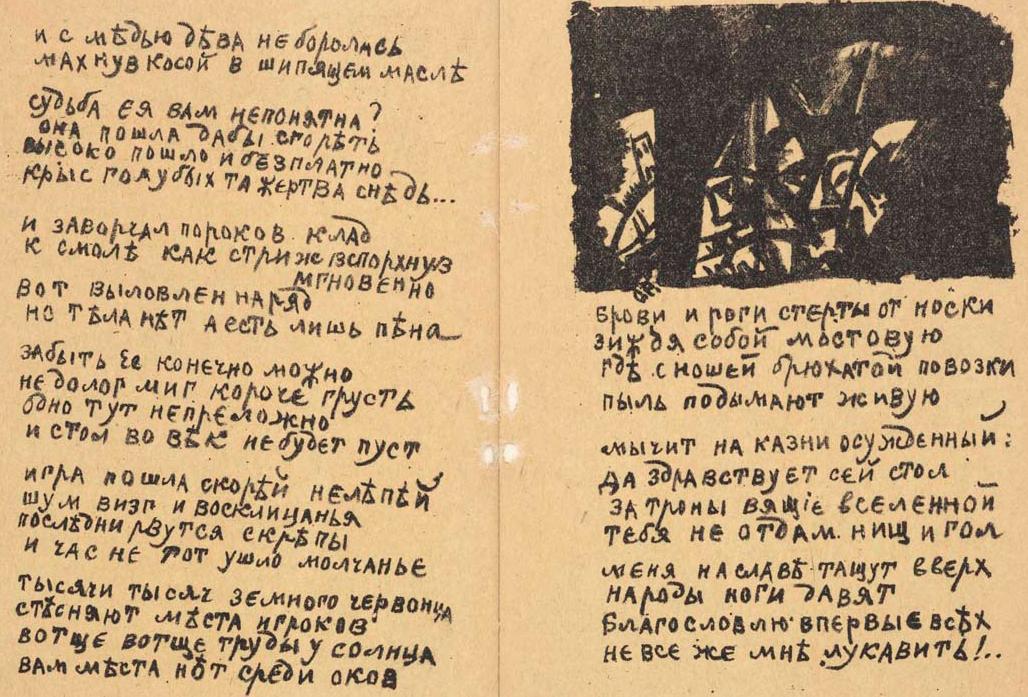 и с мѣдью дѣва не боролась
махнув косой в шипящем маслѣ
судьба ея вам непонятна?
она пошла дабы сгорѣть
высоко пошло и безплатно
крыс голубых та жертва снѣдь...
и заворчал пороков клад
к смолѣ как стриж вспорхнув
мгновенно
вот выловлен наряд
но тѣла нѣт а есть лишь пѣна
забыть ее конечно можно
недолог миг короче грусть
одно тут непреложно
и стол во вѣк не будет пуст
игра пошла скорѣй нелѣпѣй
шум визг и восклицанья
послѣдни рвутся скрѣпы
и час не тот ушло молчанье
тысячи тысяч земного червонца
стѣсняют мѣста игроков
вотще вотще труды у солнца
вам мѣста нѣт среди оков
брови и роги стерты от носки
зиждя собой мостовую
гдѣ с ношей брюхатой повозки
пыль подымают живую
мычит на казни осужденный:
да здравствует сей стол
за троны вящiе вселенной
тебя не отдам нищ и гол
меня на славѣ тащут вверх
народы ноги давят
благословлю впервые всѣх
не все же мнѣ лукавить!..